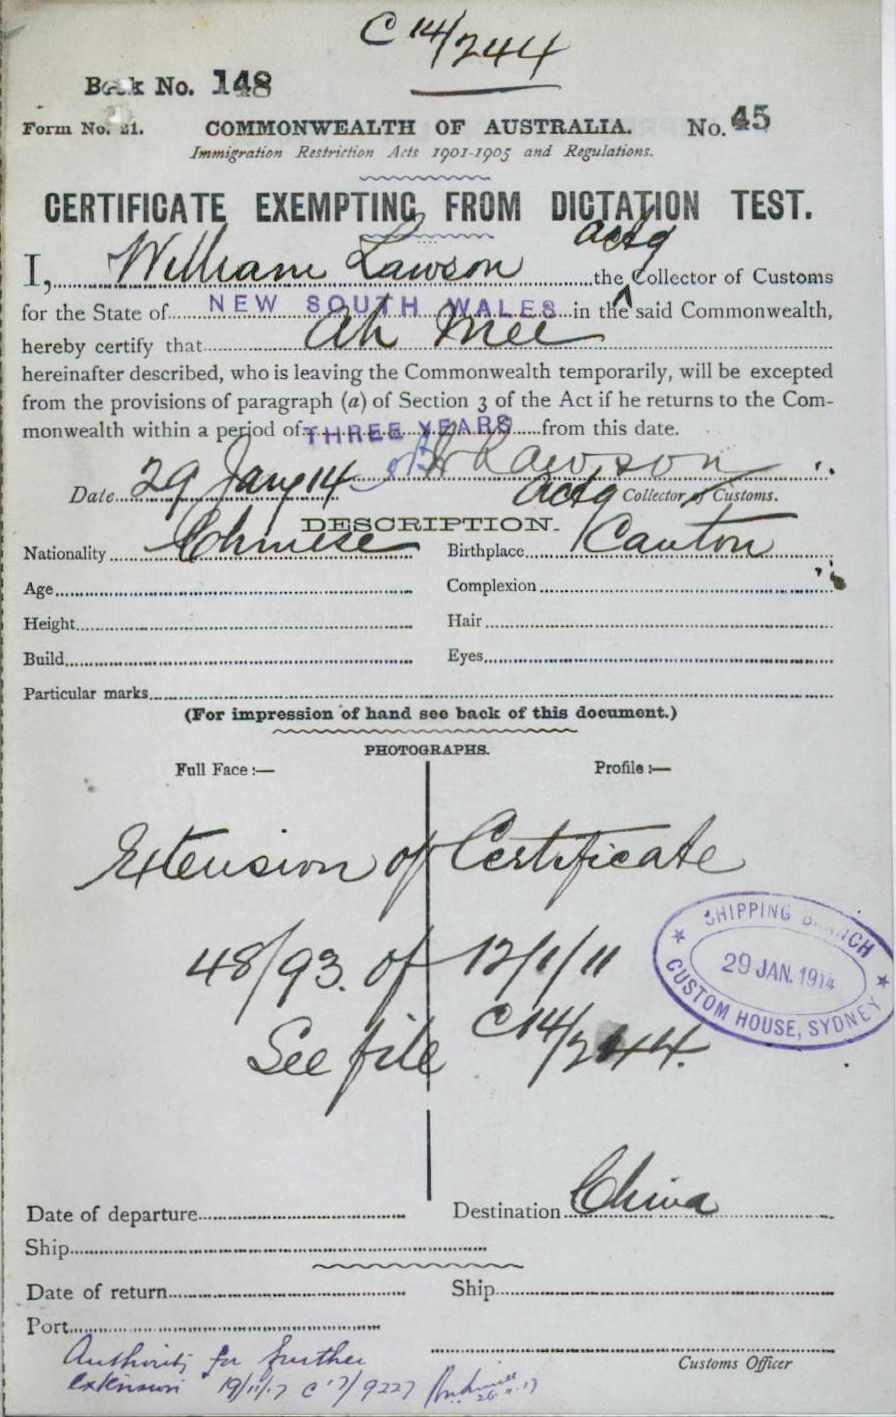 C 14/244
Book No. 148
Form No. 21. COMMONWEALTH OF AUSTRALIA. No. 45
Immigration Restriction Acts 1901-1905 and Regulations.
CERTIFICATE EXEMPTING FROM DICTATION TEST.
actg
I, William Lawson the Collector of Customs
for the State of NEW SOUTH WALES in the said Commonwealth,
hereby certify that Ah Mee
hereinafter described, who is leaving the Commonwealth temporarily, will be excepted
from the provisions of paragraph (a) of Section 3 of the Act if he returns to the Com-
monwealth within a period of THREE YEARS from this date.
W Lawson
Date 29 Jany 14 actg Collector of Customs.
DESCRIPTION.
Nationality Chinese Birthplace Canton
Age Complexion
Height Hair
Build Eyes
Particular marks
(For impression of hand see back of this document.)
PHOTOGRAPHS.
Full Face :— Profile :—
Extension of Certificate
48/93. of 12/1/11
See file C14/244.
SHIPPING BRANCH
29 JAN. 1914
CUSTOM HOUSE, SYDNEY
Date of departure Destination China
Ship
Date of return Ship
Port
Customs Officer
Authority for further
extension 19/11/17 C 17/9227